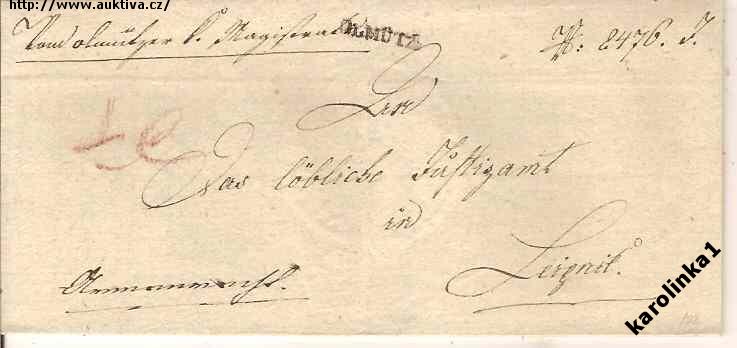 http://www.auktiva.cz/
Vom olmützer k. Magistrat
OLMÜTZ
N: 2476. J.
An
Das löbliche Justizamt
in
Leipnik.
karolinka1